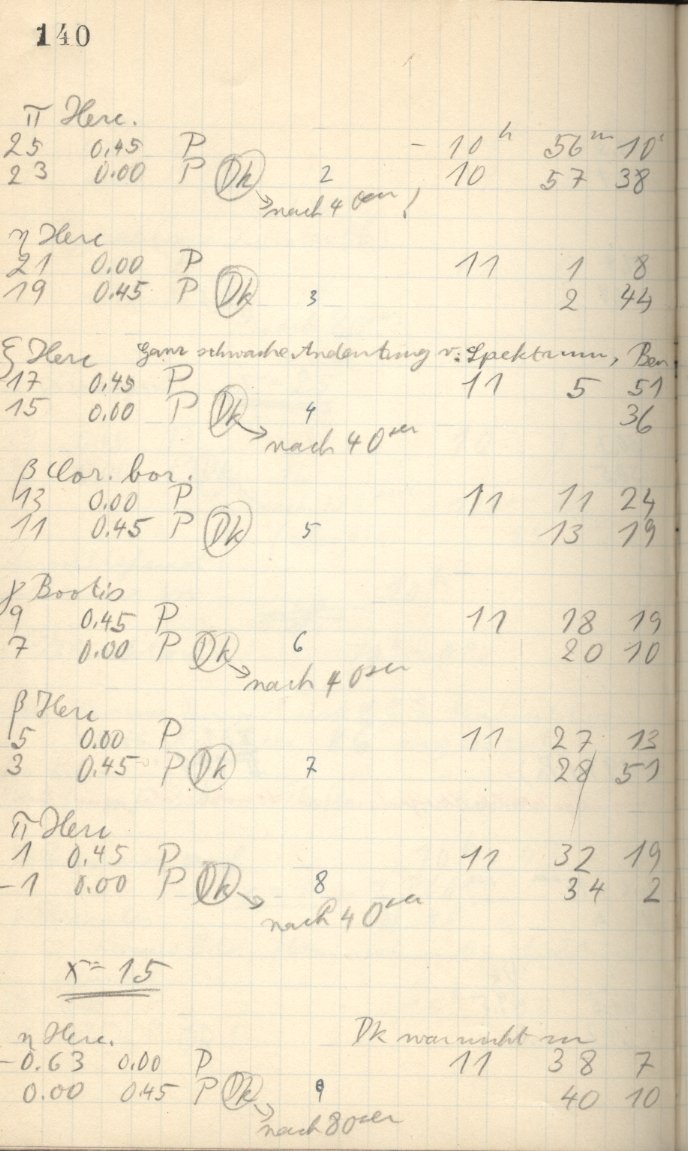 140
π Herc.
25 0.45 P - 10h 56m 10s
23 0.00 P Dk 2 10 57 38
→ nach 40sec!
η Herc
21 0.00 P 11 1 8
19 0.45 P Dk 3 2 44
ξ Herc Ganz schwache Andeutung v. Spektrum, Ben
17 0.45 P 11 5 51
15 0.00 P Dk 4 36
→ nach 40sec
β Cor. bor.
13 0.00 P 11 11 24
11 0.45 P Dk 5 13 19
γ Bootis
9 0.45 P 11 18 19
7 0.00 P Dk 6 20 10
→ nach 40sec
β Herc
5 0.00 P 11 27 13
3 0.45 P Dk 7 28 51
π Herc
1 0.45 P 11 32 19
-1 0.00 P Dk 8 34 2
→ nach 40sec
x = 15
η Herc. Dk war nicht zu
-0.63 0.00 P 11 38 7
0.00 0.45 P Dk 9 40 10
→ nach 80sec